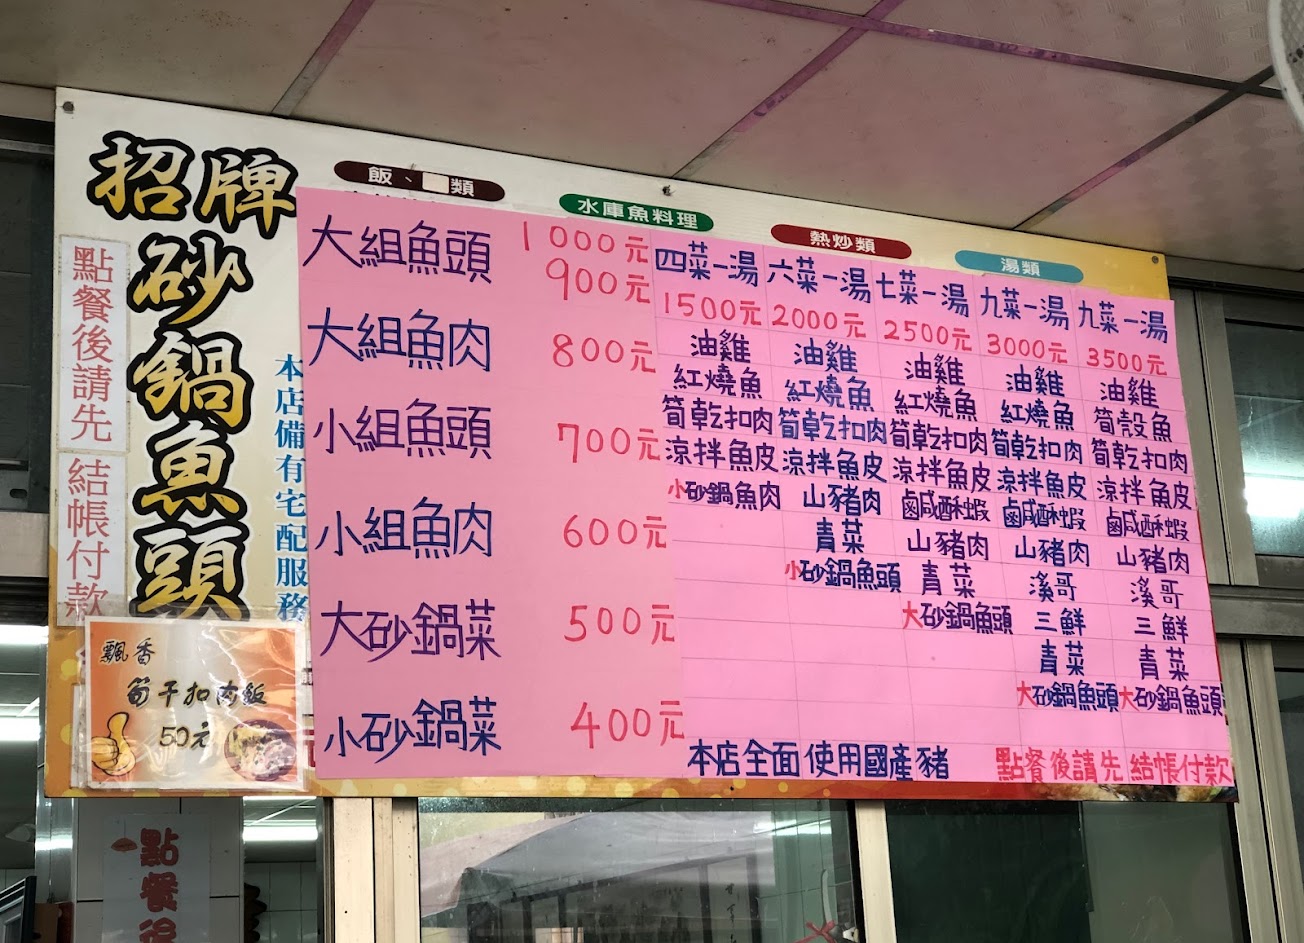 招牌砂鍋魚頭
點餐後請先
結帳付款
本店備有宅配服務
飯、 類
水庫魚料理
熱炒類
湯類
大組魚頭 1000元
900元
大組魚肉 800元
小組魚頭 700元
小組魚肉 600元
大砂鍋菜 500元
小砂鍋菜 400元
四菜一湯
1500元
油雞
紅燒魚
筍乾扣肉
涼拌魚皮
小砂鍋魚肉
六菜一湯
2000元
油雞
紅燒魚
筍乾扣肉
涼拌魚皮
山豬肉
青菜
小砂鍋魚頭
七菜一湯
2500元
油雞
紅燒魚
筍乾扣肉
涼拌魚皮
鹹酥蝦
山豬肉
青菜
大砂鍋魚頭
九菜一湯
3000元
油雞
紅燒魚
筍乾扣肉
涼拌魚皮
鹹酥蝦
山豬肉
溪哥
三鮮
青菜
大砂鍋魚頭
九菜一湯
3500元
油雞
筍殼魚
筍乾扣肉
涼拌魚皮
鹹酥蝦
山豬肉
溪哥
三鮮
青菜
大砂鍋魚頭
本店全面使用國產豬
點餐後請先結帳付款
飄香
筍干扣肉飯
50元
點餐後